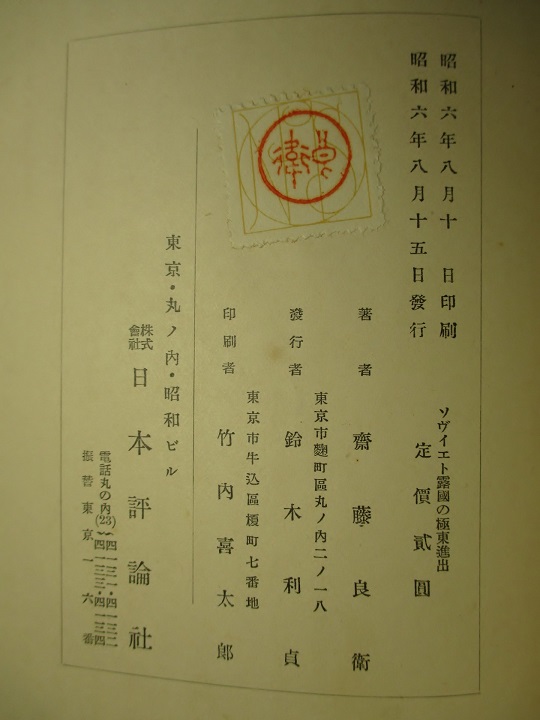 昭和六年八月十 日印刷
昭和六年八月十五日發行
ソヴィエト露國の極東進出
定價貳圓
著者 齋藤良衛
東京市麴町區丸ノ內二ノ一八
發行者 鈴木利貞
東京市牛込區榎町七番地
印刷者 竹內喜太郎
東京・丸ノ內・昭和ビル
株式會社 日本評論社
電話丸の內(23)
振替東京一六番
良衛